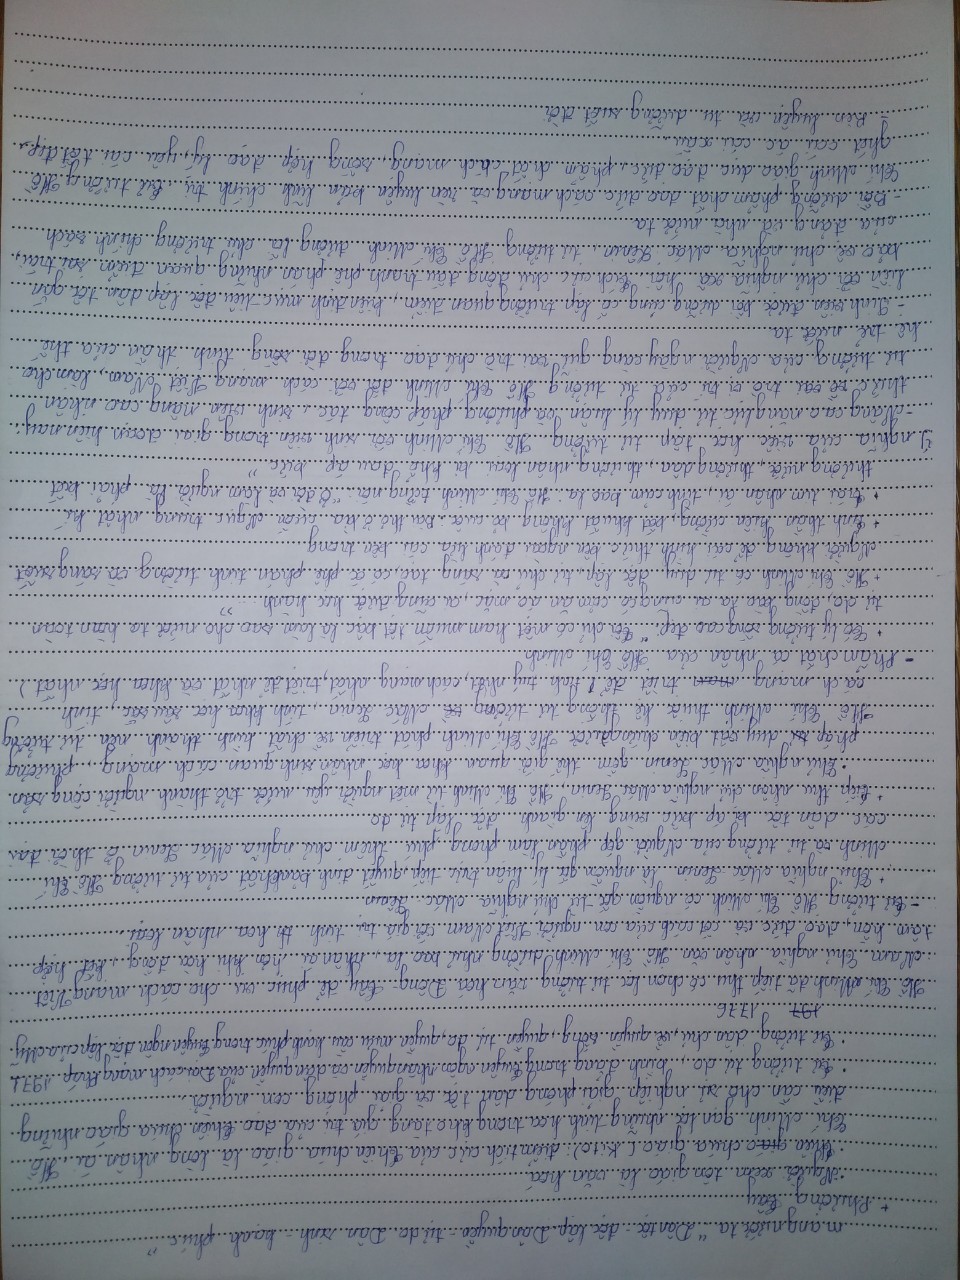 mạng nước ta "Dân tộc - độc lập. Dân quyền - tự do. Dân sinh - hạnh phúc"
+ Phương Tây
· Người xem tôn giáo là văn hoá
· Thiên giáo chúa giáo (Kito): điểm tích cực của Thiên chúa giáo là lòng nhân ái. Hồ
Chí Minh gạn lọc những tinh hoa trong kho tàng giá trị của đạo thiên chúa giáo những
điều cần cho sự nghiệp giải phóng dân tộc và giải phóng con người
· Tư tưởng tự do, bình đẳng trong tuyên ngôn nhân quyền và dân quyền của Đại cách mạng Pháp 1971
· Tư tưởng dân chủ, về quyền sống, quyền tự do, quyền mưu cầu hạnh phúc trong tuyên ngôn độc lập của Mỹ
197 1776
Hồ Chí Minh đã tiếp thu có chọn lọc tư tưởng văn hoá Đông - Tây để phục vụ cho cách mạng Việt
Nam. Chủ nghĩa nhân văn Hồ Chí Minh dường như bao la, nhân ái hơn khi hòa đồng, kết hợp
tâm hồn, đạo đức và cốt cách của con người Việt Nam với giá trị tinh th hoa nhân loại
- Tư tưởng Hồ Chí Minh có nguồn gốc từ chủ nghĩa Mác - Lênin
+ Chủ nghĩa Mác - Lenin là nguồn gốc lý luận trực tiếp, quyết định bản chất của tư tưởng Hồ Chí
Minh và tư tưởng của Người góp phần làm phong phú thêm chủ nghĩa Mác Lenin ở thời đại
các dân tộc bị áp bức vùng lên giành độc lập tự do
+ Tiếp thu nhân chủ nghĩa Mác Lenin, Hồ Chí Minh từ một người yêu nước trở thành người cộng sản
· Chủ nghĩa Mác Lenin gồm thế giới quan khoa học nhân sinh quan cách mạng, phương
pháp tư duy vật biện chứng được Hồ Chí Minh phát triển về chất hình thành nên tư tưởng
Hồ Chí Minh thuộc hệ thống tư tưởng về Mác Lenin, tính khoa học sâu sắc, tính
cách mạng triệt để (tinh tuý nhất, cách mạng nhất, triệt để nhất và khoa học nhất)
- Phẩm chất cá nhân của Hồ Chí Minh
+ Có lý tưởng sống cao đẹp: "Tôi chỉ có một ham muốn tột bậc là làm sao cho nước ta hoàn toàn
tự do, đồng bào ta ai cũng có cơm ăn áo mặc, ai cũng được học hành..."
+ Hồ Chí Minh có tư duy độc lập, tự chủ và sáng tạo, có óc phê phán tinh tường và sáng suốt
Người không để cái hình thức bên ngoài đánh lừa cái bên trong
+ Tinh thần kiên cường, bất khuất không bỏ cuộc. Bài thơ ở bìa cuốn Ngục trung nhật kí
+ Trái tim nhân ái, tình cảm bao la: Hồ Chí Minh từng nói: "Ở đời và làm người là phải biết
thương nước, thương dân, thương nhân loại bị khổ đau áp bức"
Ý nghĩa của việc học tập tư tưởng Hồ Chí Minh với sinh viên trong giai đoạn hiện nay:
- Nâng cao năng lực tư duy lý luận và phương pháp công tác, sinh viên nâng cao nhận
thức về vai trò vị trí của tư tưởng Hồ Chí Minh đối với cách mạng Việt Nam, làm cho
tư tưởng của Người ngày càng giữ vai trò chủ đạo trong đời sống tinh thần của thế
hệ trẻ nước ta
- Sinh viên được bồi dưỡng củng cố lập trường quan điểm, kiên định mục tiêu độc lập dân tộc gắn
liền với chủ nghĩa xã hội. Tích cực chủ động đấu tranh phê phán những quan điểm sai trái,
bảo vệ chủ nghĩa Mác Lênin, tư tưởng Hồ Chí Minh, đường lối, chủ trương chính sách
của đảng và nhà nước ta
- Bồi dưỡng phẩm chất đạo đức cách mạng và rèn luyện bản lĩnh chính trị. Tư tưởng Hồ
Chí Minh giáo dục đạo đức, phẩm chất cách mạng, sống hợp đạo lý, yêu cái tốt đẹp,
ghét cái ác cái xấu.
- Rèn luyện và tu dưỡng suốt đời